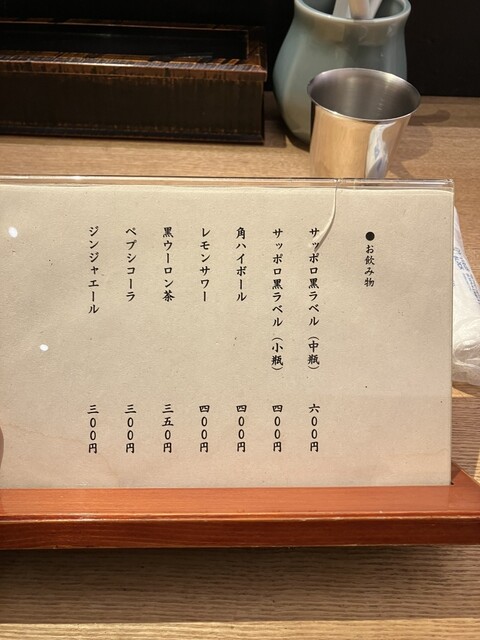 ●お飲み物
サッポロ黒ラベル（中瓶） 六00円
サッポロ黒ラベル（小瓶） 四00円
角ハイボール 四00円
レモンサワー 四00円
黒ウーロン茶 三五0円
ペプシコーラ 三00円
ジンジャエール 三00円